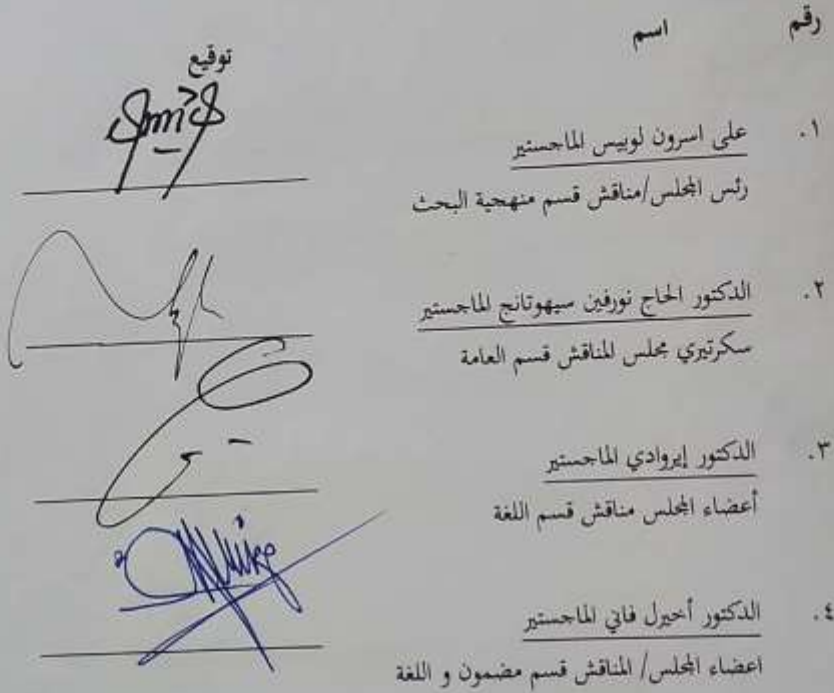 رقم اسم توقيع
١. على اسرون لوبيس الماجستير
رئس المجلس/مناقش قسم منهجية البحث
٢. الدكتور الحاج نورفين سيهوتانج الماجستير
سكرتيري مجلس المناقش قسم العامة
٣. الدكتور إيروادي الماجستير
أعضاء المجلس مناقش قسم اللغة
٤. الدكتور أخيرل فاني الماجستير
اعضاء المجلس/ المناقش قسم مضمون و اللغة